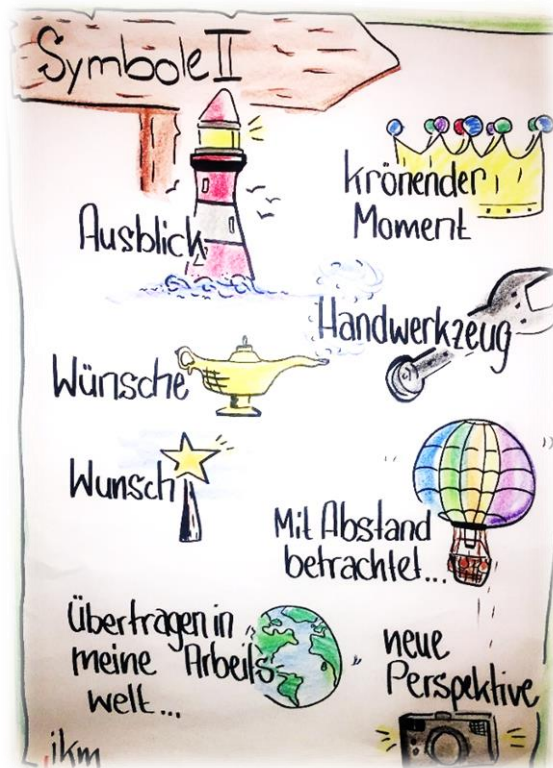 Symbole II
krönender
Moment
Ausblick
Handwerkzeug
Wünsche
Wunsch
Mit Abstand
betrachtet...
Übertragen in
meine Arbeits
welt...
neue
Perspektive
jkm